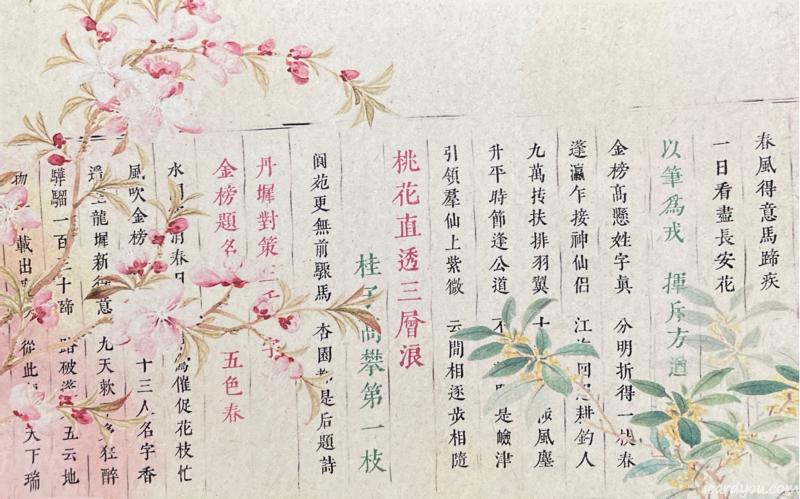 春風得意馬蹄疾
一日看盡長安花
以筆爲戎 揮斥方遒
金榜高懸姓字眞 分明折得一枝春
蓬瀛乍接神仙侶 江 回 耕釣人
九萬抟扶排羽翼 十 風塵
升平時節逢公道 不 是嶮津
引領羣仙上紫微 云間相逐步相隨
桃花直透三層浪
桂子高攀第一枝
閬苑更無前驟馬 杏園都是后題詩
丹墀對策三千字
金榜題名 五色春
水 消春日 爲催促花枝忙
風吹金榜 十三人名字香
龍墀新得意 九天歌 狂醉
驊騮一百三十蹄 踏破 五云地
物 載出 從此 天下瑞